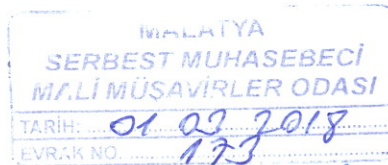 MALATYA
SERBEST MUHASEBECİ
MALİ MÜŞAVİRLER ODASI
TARİH: 01 03 2018
EVRAK NO. 173